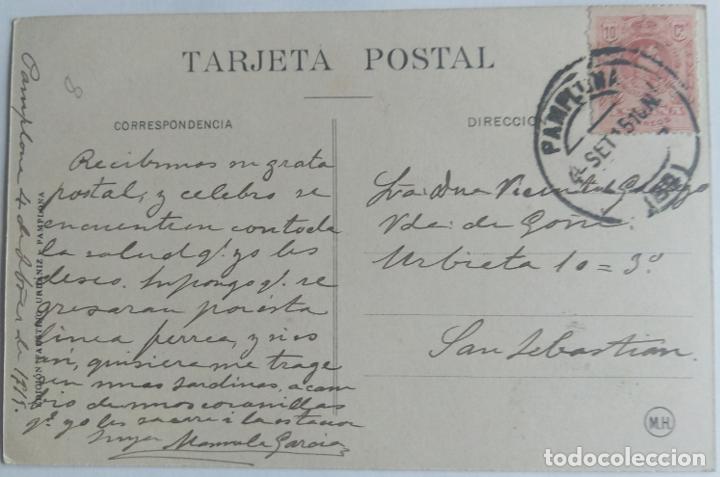 TARJETA POSTAL
CORRESPONDENCIA
DIRECCIO
10 Cs
PAMPLONA
4 SET 15
Recibimos su grata
postal, y celebro se
encuentren con toda
la salud q.e yo les
deseo. Supongo q.e re
gresaran por esta
linea ferrea, y si es
asi, quisiera me trage
sen unas sardinas, a cam
bio de unos
q.e yo les sacaré á la estacion
suya Manuela Garcia
Sra. Dña. Vicenta
Vda. de Goñi
Urbieta 10 = 3º
San Sebastian.
Pamplona 4 de de 1915.
EDICIÓN FAUSTINO URDANIZ - PAMPLONA
M.H.
todocoleccion.net